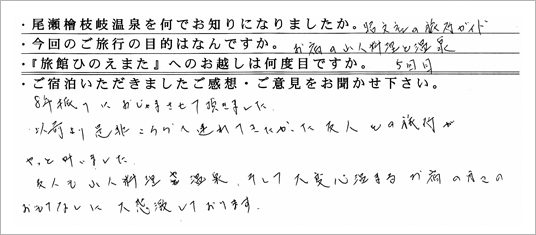 ・尾瀬檜枝岐温泉を何でお知りになりましたか。昭文社の旅行ガイド
・今回のご旅行の目的はなんですか。お宿の山人料理と温泉
・『旅館ひのえまた』へのお越しは何度目ですか。5回目
・ご宿泊いただきましたご感想・ご意見をお聞かせ下さい。
8年振りにおじゃまさせて頂きました。
以前より是非こちらへ連れてきたかった友人との旅行が
やっと叶いました。
友人も山人料理、温泉、そして大変心温まるお宿の方々の
おもてなしに大感激しております。